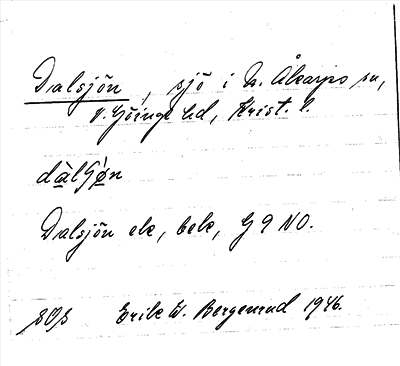 Dalsjön, sjö i N. Åkarps sn,
V. Göinge hd, Krist. l.
dàlʃǿn
Dalsjön ek, bek, G 9 NO.
SOs Erik W. Bergenrud 1946.